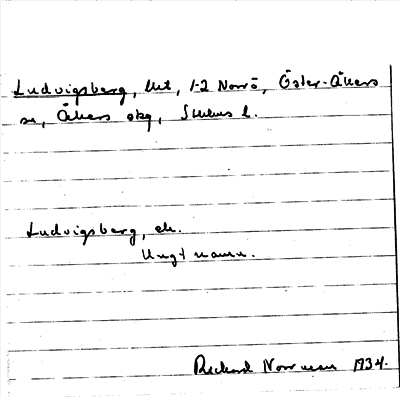 Ludvigsberg, lht, 1-2 Norrö, Öster-Åkers
sn, Åkers skg, Sthlms l.
Ludvigsberg, 
Ungt namn.
Rickard 1934.